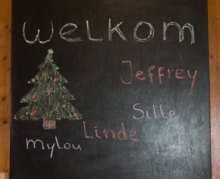 Welkom
Jeffrey
Sille
Linde
Mylou